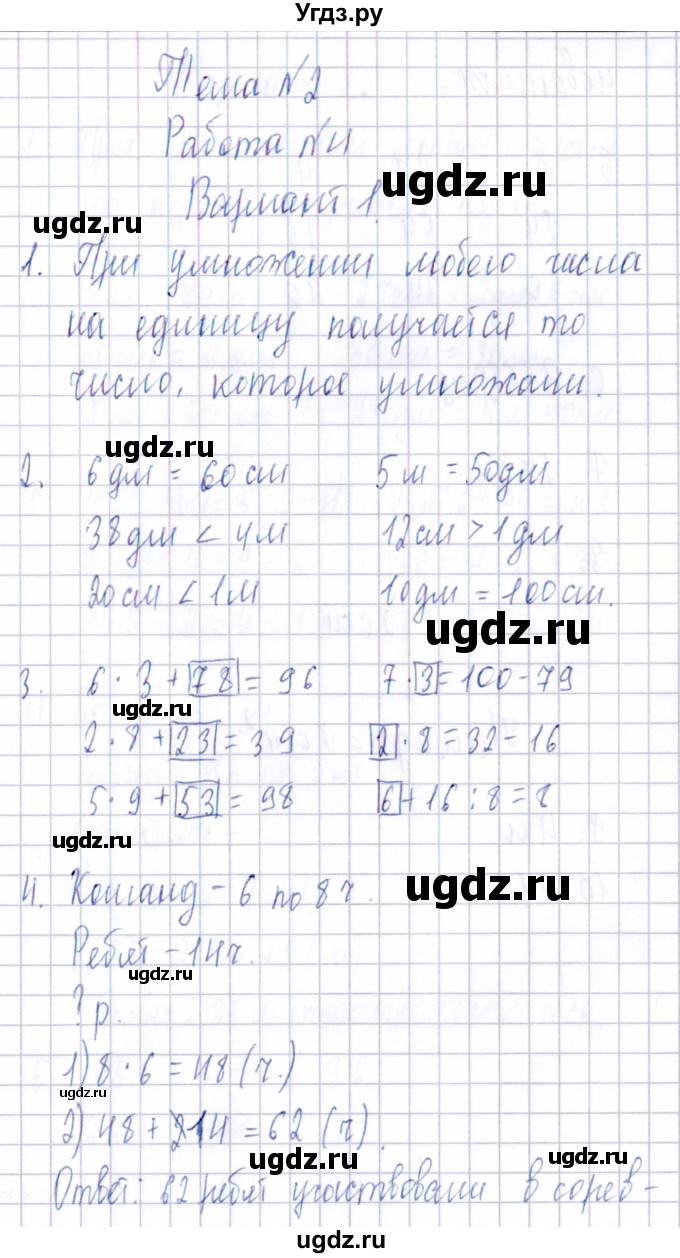 Угдз.ру
Тема №2
Работа №4
Вариант 1.
1. При умножении любого числа
на единицу получается то
число, которое умножали.
2. 6 дм = 60 см 5 м = 50 дм
38 дм < 4 м 12 см > 1 дм
20 см < 1 м 10 дм = 100 см.
3. 6 · 3 + 78 = 96 7 · 3 = 100 - 79
2 · 8 + 23 = 39 2 · 8 = 32 - 16
5 · 9 + 53 = 98 6 + 16 : 8 = 8
4. Команд - 6 по 8 ч.
Ребят - 14 ч.
? р.
1) 8 · 6 = 48 (ч.)
2) 48 + 14 = 62 (ч).
Ответ: 62 ребят участвовали в сорев-
ugdz.ru
ugdz.ru
ugdz.ru
ugdz.ru
ugdz.ru
ugdz.ru
ugdz.ru
ugdz.ru
ugdz.ru
ugdz.ru
ugdz.ru
ugdz.ru